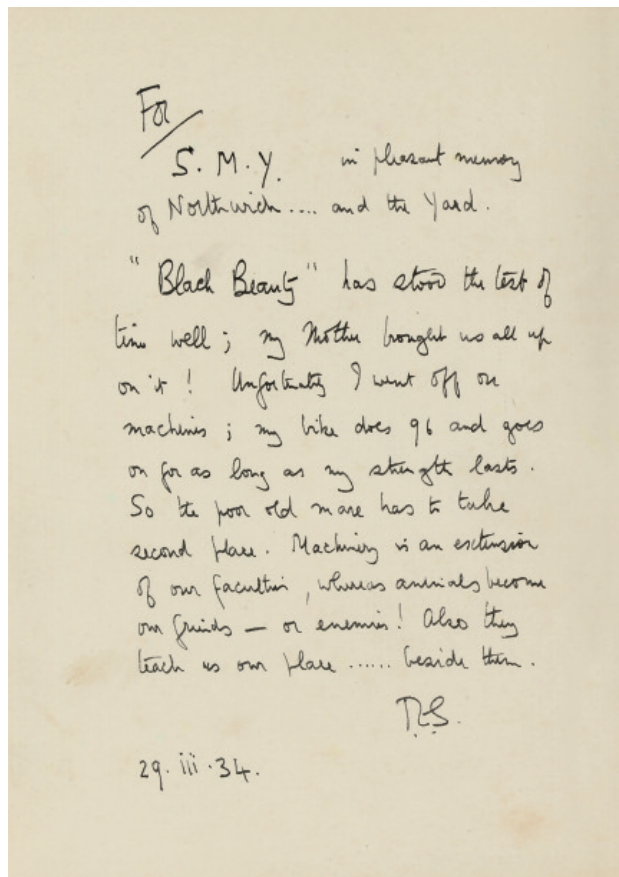 For
S. M. Y. in pleasant memory
of Northwich .... and the Yard.
"Black Beauty" has stood the test of
time well; my Mother brought us all up
on it! Unfortunately I went off on
machines; my bike does 96 and goes
on for as long as my strength lasts.
So the poor old mare has to take
second place. Machinery is an extension
of our faculties, whereas animals become
our friends — or enemies! Also they
teach us our place ...... beside them.
T.E.S.
29. iii. 34.